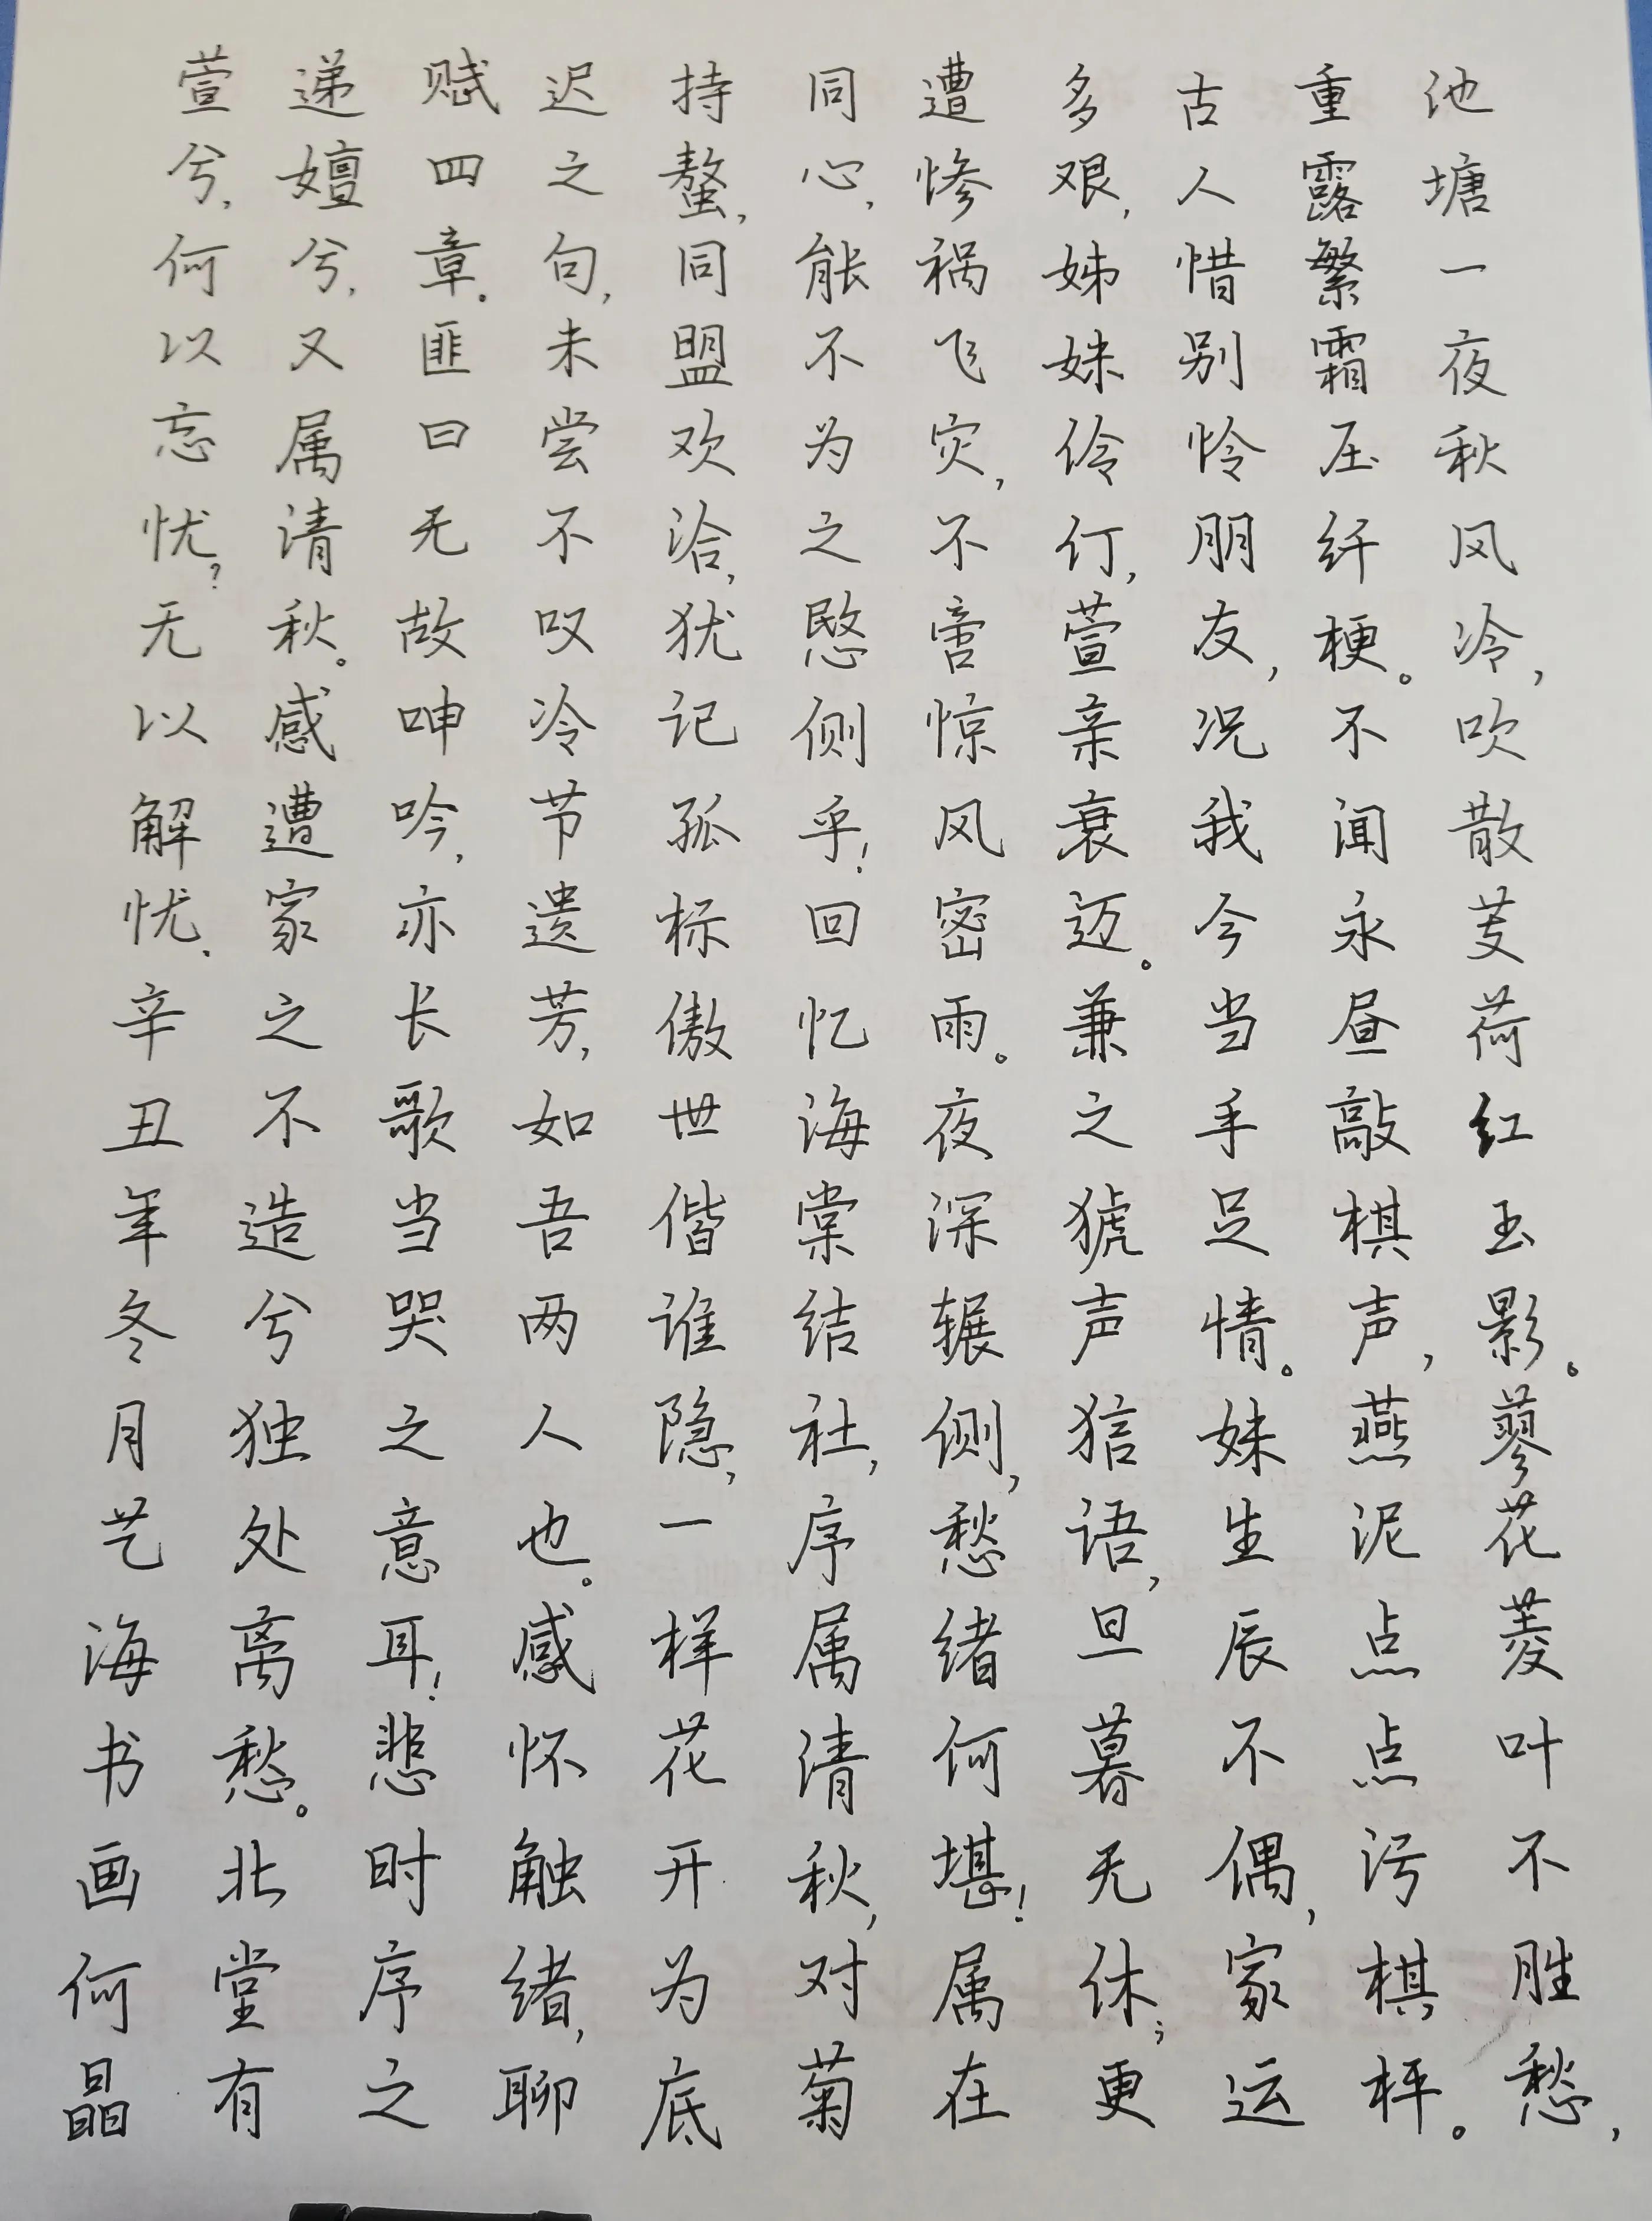 池塘一夜秋风冷,吹散芰荷红玉影。蓼花菱叶不胜愁,
重露繁霜压纤梗。不闻永昼敲棋声,燕泥点点污棋枰。
古人惜别怜朋友,况我今当手足情。妹生辰不偶,家运
多艰,姊妹伶仃,萱亲衰迈。兼之猇声狺语,旦暮无休;更
遭惨祸飞灾,不啻惊风密雨。夜深辗侧,愁绪何堪!属在
同心,能不为之愍侧乎!回忆海棠结社,序属清秋,对菊
持螯,同盟欢洽,犹记孤标傲世偕谁隐,一样花开为底
迟之句,未尝不叹冷节遗芳,如吾两人也。感怀触绪,聊
赋四章。匪曰无故呻吟,亦长歌当哭之意耳!悲时序之
递嬗兮,又属清秋。感遭家之不造兮独处离愁。北堂有
萱兮,何以忘忧?无以解忧.辛丑年冬月艺海书画何晶